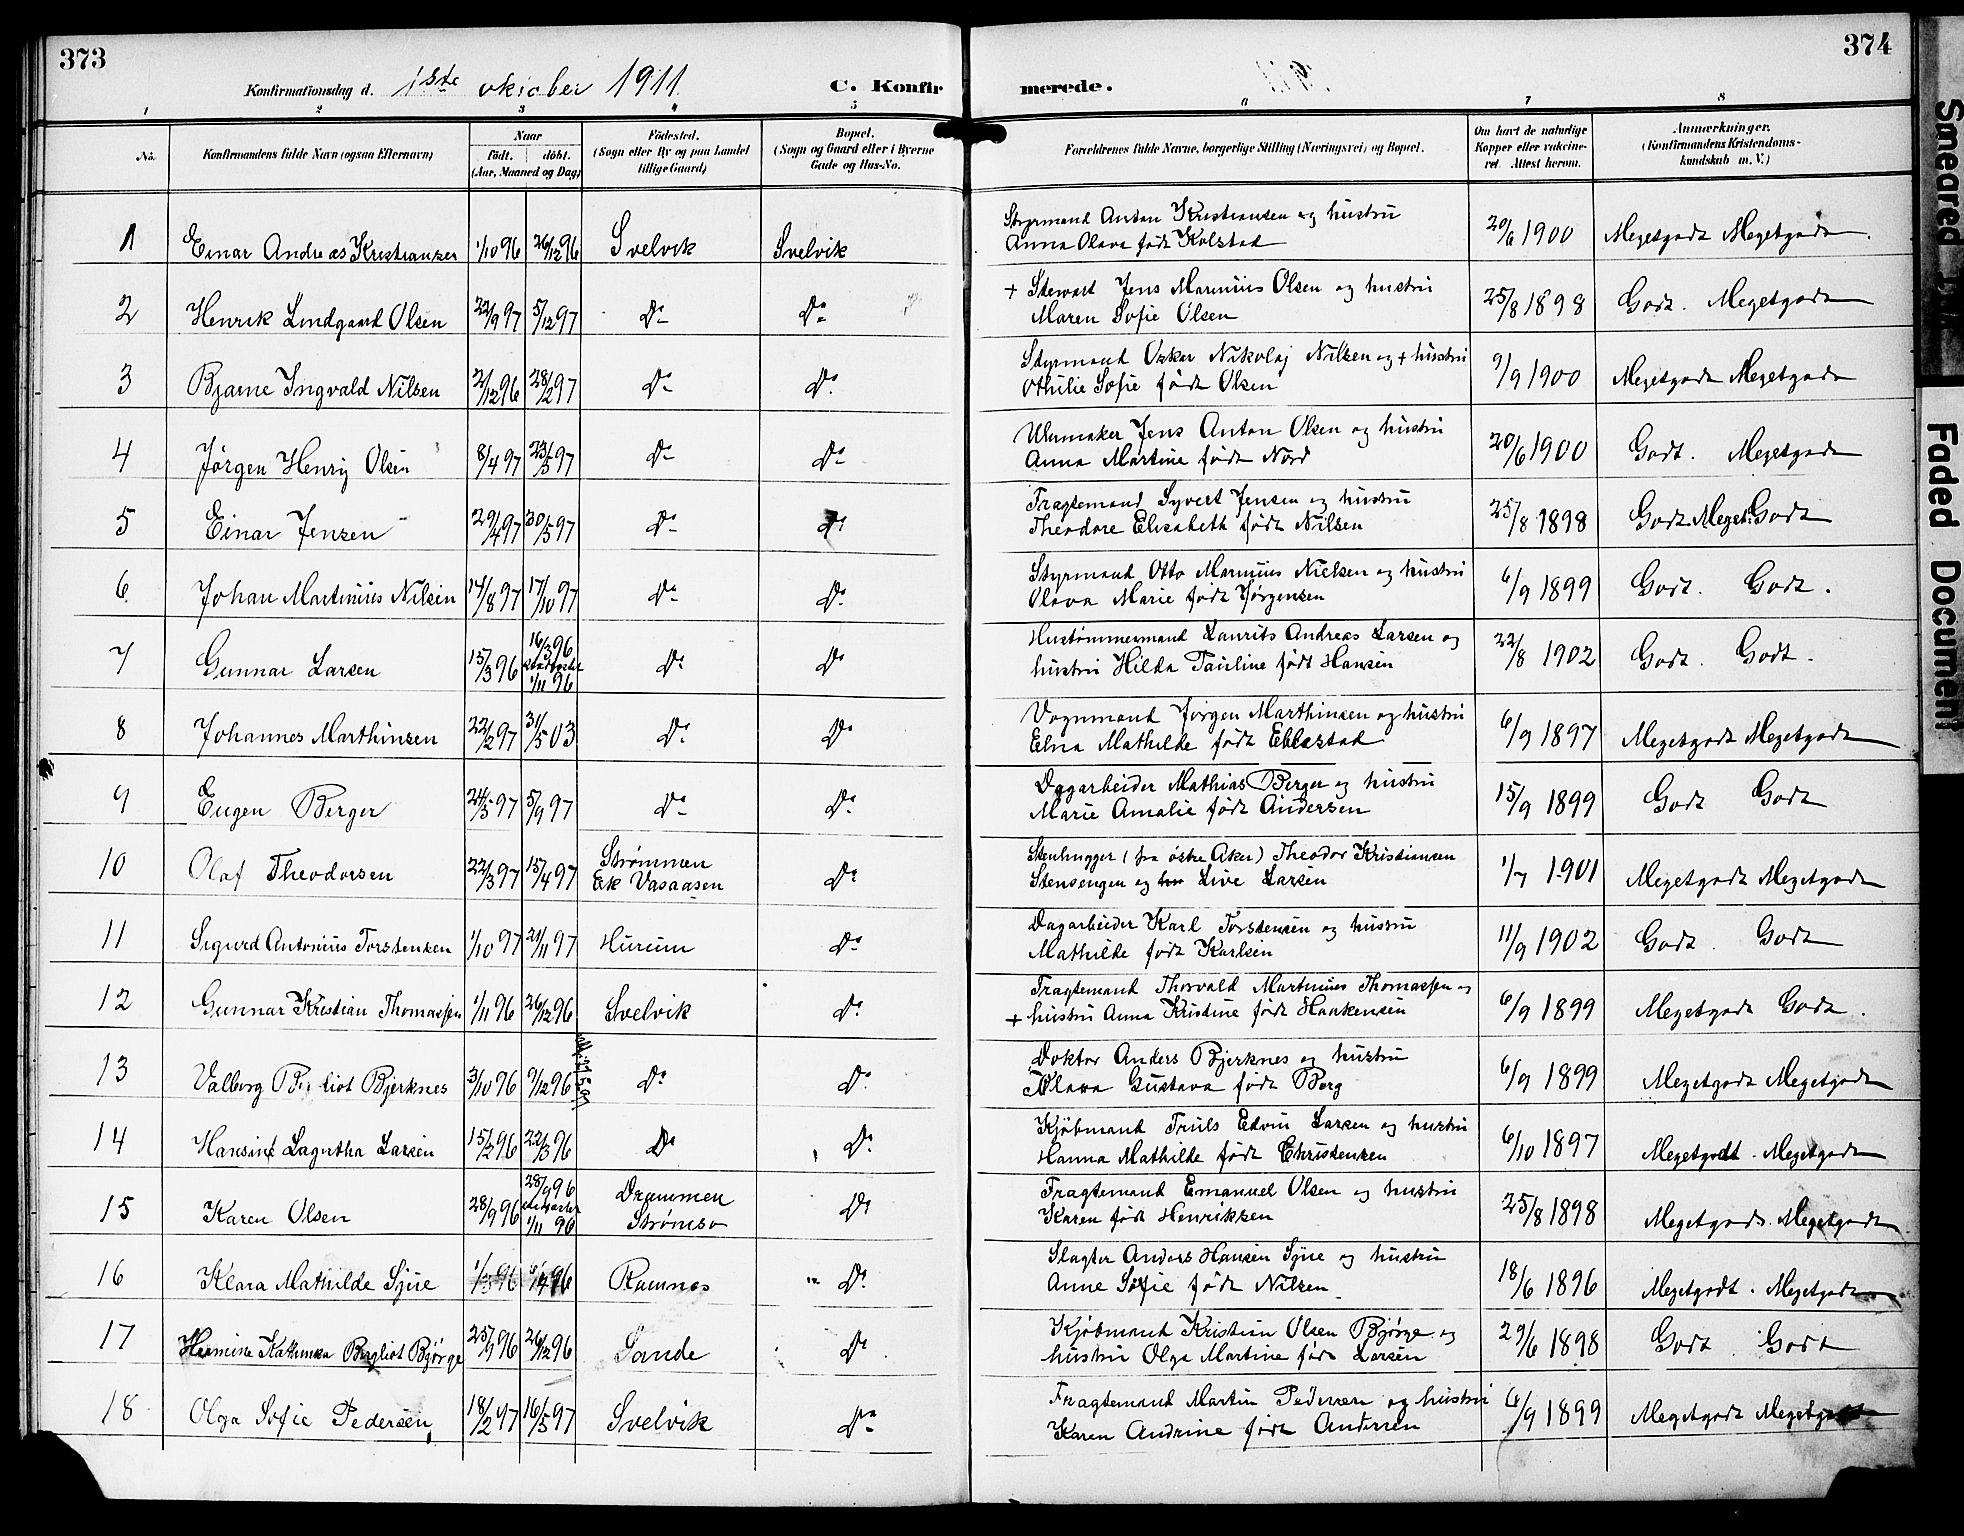 373
374
Konfirmationsdag d. 1ste oktober 1911
C. Konfirmerede.
1 2 3 4 5 6 7 8
No.
Konfirmandens fulde Navn (ogsaa Efternavn)
Naar
født. døbt.
(Aar, Maaned og Dag)
Fødested.
(Sogn eller By og paa Landet
tillige Gaard)
Bopæl.
(Sogn og Gaard eller i Byerne
Gade og Hus-No.
Forældrenes fulde Navne, borgerlige Stilling (Næringsvei) og Bopæl.
Om havt de naturlige
Kopper eller vakcine-
ret. Attest herom.
Anmærkninger.
(Konfirmandens Kristendoms-
kundskab m. V.)
1 Einar Andreas Kristiansen 1/10 96 26/12 96 Svelvik Svelvik Styrmand Anton Kristiansen og hustru
Anna Olava født Kolstad 20/6 1900 Megetgodt Megetgodt.
2 Henrik Lindgaard Olsen 22/9 97 5/12 97 Do Do + Stewart Jens Marinius Olsen og hustru
Maren Sofie Olsen 25/8 1898 Godt. Megetgodt
3 Bjarne Ingvald Nilsen 2/12 96 28/2 97 Do Do. Styrmand Oskar Nikolaj Nilsen og + hustru
Othilie Sofie født Olsen 9/9 1900 Megetgodt Megetgodt
4 Jørgen Henry Olsen 8/4 97 23/5 97 Do Do Uhrmaker Jens Anton Olsen og hustru
Anna Martine født Nord 20/6 1900 Godt. Megetgodt
5 Einar Jensen 29/4 97 30/5 97 Do Do Fragtemand Syvert Jensen og hustru
Theodore Elisabeth født Nilsen 25/8 1898 Godt. Meget Godt
6 Johan Martinius Nilsen 14/8 97 17/10 97 Do Do. Styrmand Otto Marinius Nielsen og hustru
Olava Marie født Jørgensen 6/9 1899 Godt. Godt.
7 Gunnar Larsen 15/3 96 16/3 96
stadfæstet
1/11 96 Do Do Hustømmermand Laurits Andreas Larsen og
hustru Hilda Pauline født Hansen 22/8 1902 Godt. Godt.
8 Johannes Marthinsen 22/2 97 31/5 03 Do Do Vognmand Jørgen Marthinsen og hustru
Elna Mathilde født Ebbestad 6/9 1897 Megetgodt Megetgodt
9 Eugen Berger 24/5 97 5/9 97 Do Do. Dagarbeider Mathias Berger og hustru
Marie Amalie født Andersen 15/9 1899 Godt Godt
10 Olaf Theodorsen 22/3 97 15/4 97 Strømmen
Ek Vasaasen Do Stenhugger (fra østre Aker) Theodor Kristiansen
Stensengen og Live Larsen 1/7 1901 Megetgodt Megetgodt
11 Sigurd Antonius Torstensen 1/10 97 21/11 97 Hurum Do Dagarbeider Karl Torstensen og hustru
Mathilde født Karlsen 11/9 1902 Godt. Godt
12 Gunnar Kristian Thomassen 1/11 96 26/12 96 Svelvik Do. Fragtemand Thorvald Martinius Thomassen og
+ hustru Anna Kristine født Haakensen 6/9 1899 Megetgodt Godt.
13 Valborg Bergliot Bjerknes 3/10 96 9/12 96 Do Do. Doktor Anders Bjerknes og hustru
Olava Gustava født Berg 6/9 1899 Megetgodt Megetgodt
14 Hansine Lagertha Larsen 15/2 96 22/3 96 Do Do. Kjøbmand Truls Edvin Larsen og hustru
Hanna Mathilde født Christensen 6/10 1897 Megetgodt. Megetgodt
15 Karen Olsen 28/9 96 28/9 96
stadfæstet
1/11 96 Drammen
Strømsø Do Fragtemand Emanuel Olsen og hustru
Karen født Henriksen 25/8 1898 Megetgodt. Megetgodt
16 Klara Mathilde Sjue 1/3 96 Ramnes Do. Slagter Anders Hansen Sjue og hustru
Anne Sofie født Nilsen 18/6 1896 Megetgodt. Megetgodt
17 Hermine Kathinka Bergliot Bjørge 25/9 96 26/12 96 Sande Do Kjøbmand Kristian Olsen Bjørge og
hustru Olga Martine født Larsen 29/6 1898 Godt. Godt
18 Olga Sofie Pedersen 18/2 97 16/5 97 Svelvik Do Fragtemand Martin Pedersen og hustru
Karen Andrine født Andersen 6/9 1899 Megetgodt Megetgodt
Smeared
Faded Document